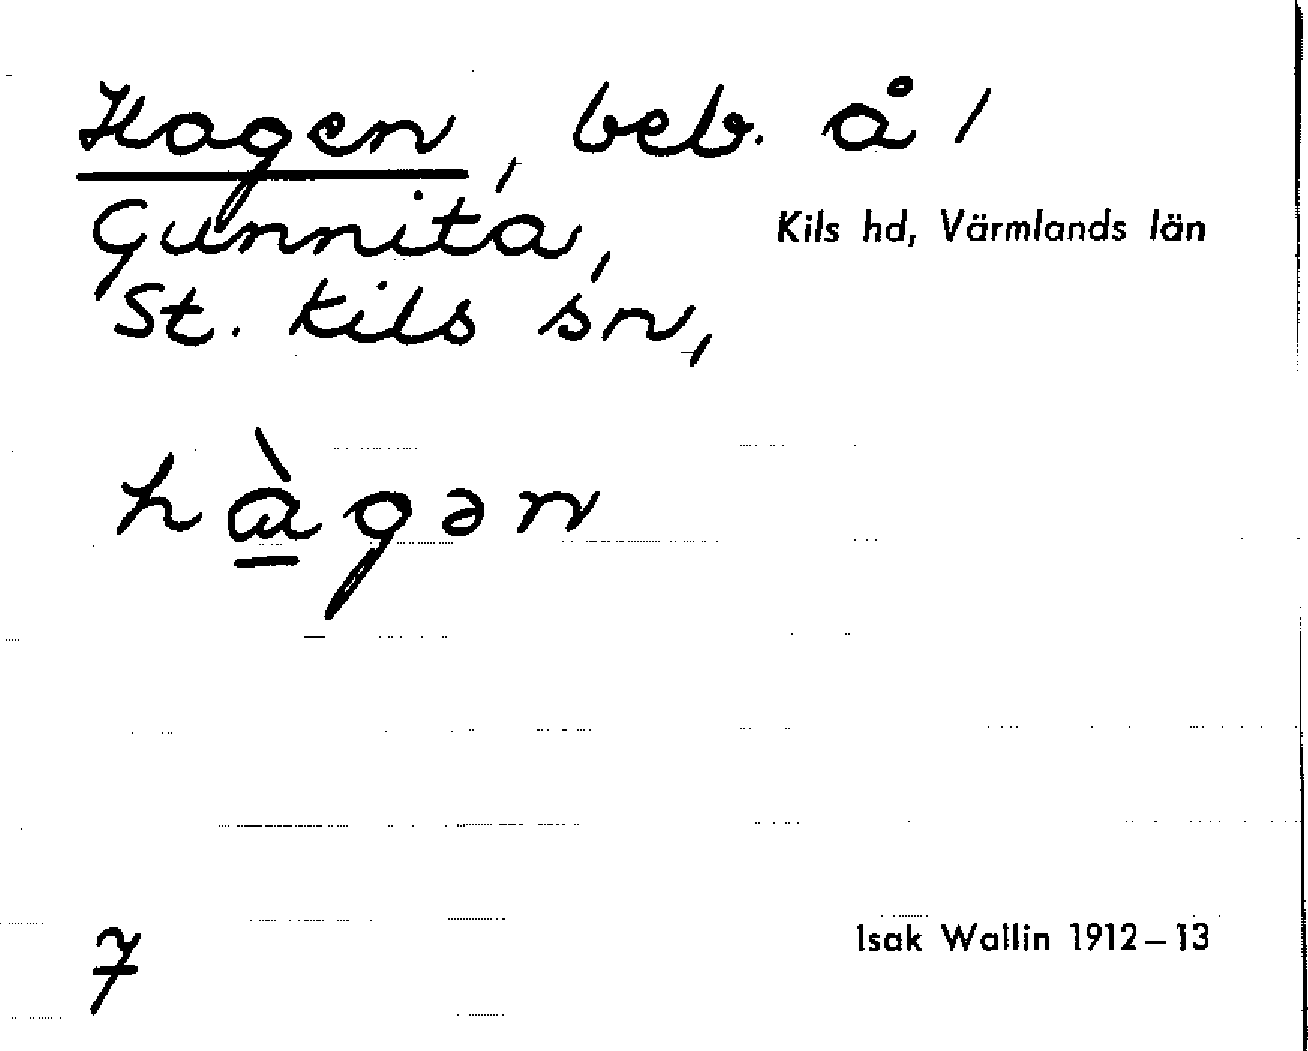 Hagen, beb. å /
Gunnita,
Kils hd, Värmlands län
St. Kils sn,
hàgən
7
Isak Wallin 1912–13